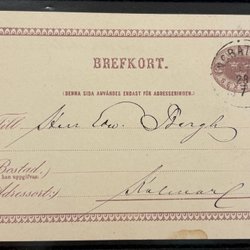 BREFKORT.
(DENNA SIDA ANVÄNDES ENDAST FÖR ADRESSERINGEN.)
Till Herr Edw. Bergh
Bostad:
(om kan uppgifvas)
Adressort: Kalmar